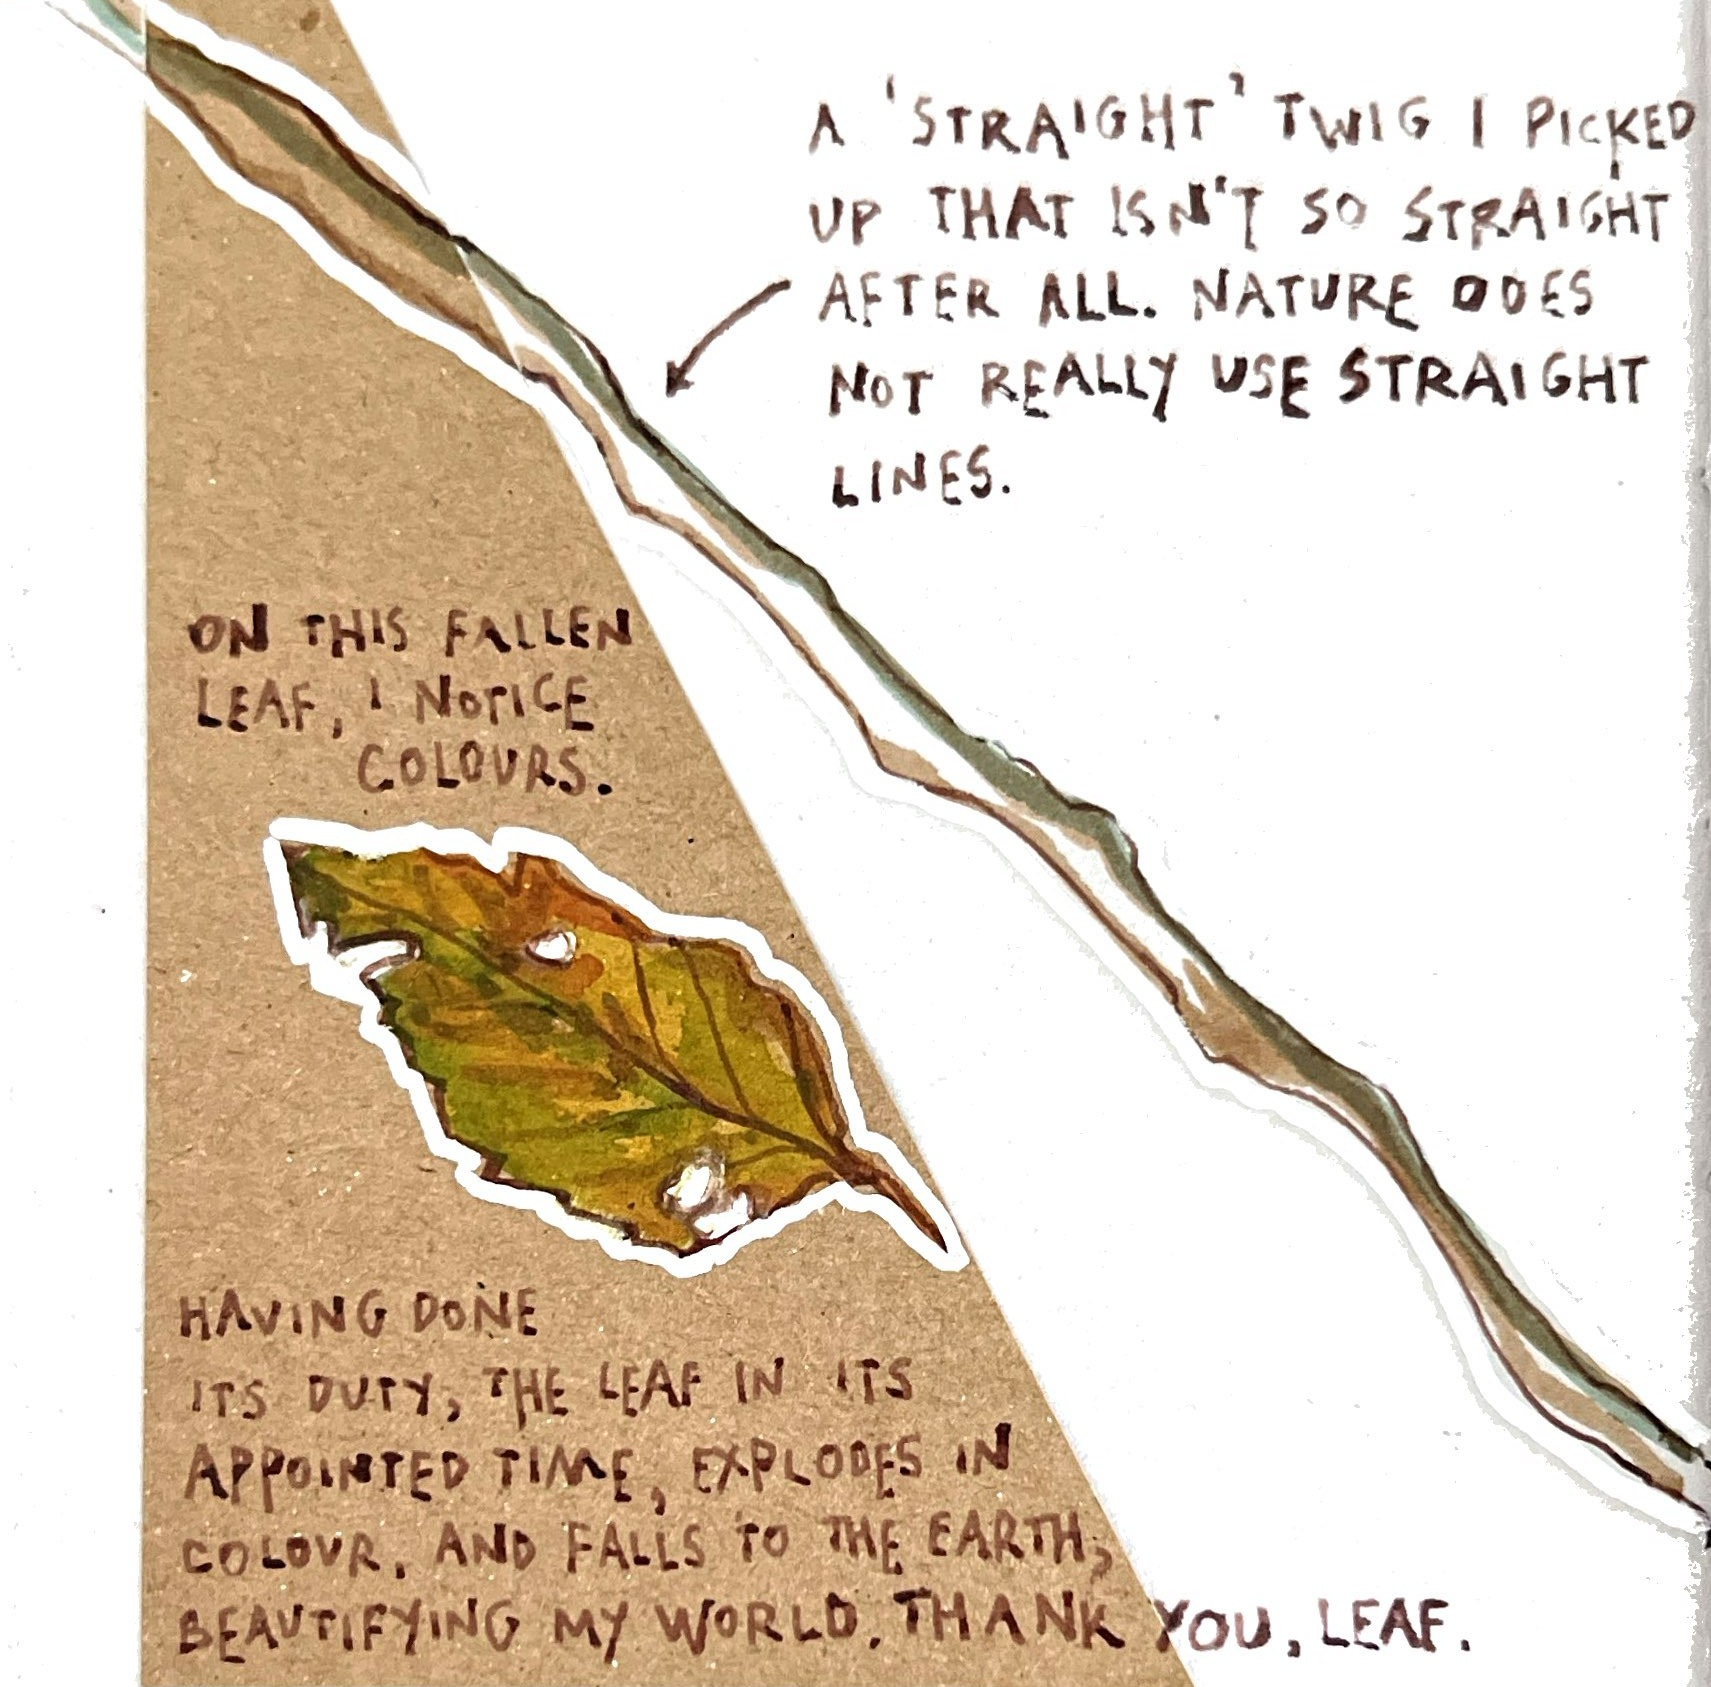 A 'STRAIGHT' TWIG I PICKED
UP THAT ISN'T SO STRAIGHT
AFTER ALL. NATURE DOES
NOT REALLY USE STRAIGHT
LINES.
ON THIS FALLEN
LEAF, I NOTICE
COLOURS.
HAVING DONE
ITS DUTY, THE LEAF IN ITS
APPOINTED TIME, EXPLODES IN
COLOUR, AND FALLS TO THE EARTH,
BEAUTIFYING MY WORLD. THANK YOU, LEAF.